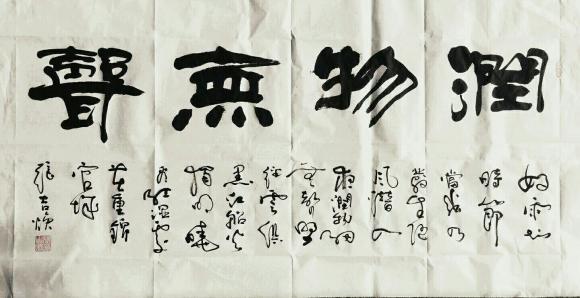 潤物無聲
好雨知
時節
當春乃
發生隨
風潛入
夜潤物細
無聲野
徑雲俱
黑江船火
獨明曉
看紅濕處
花重錦
官城